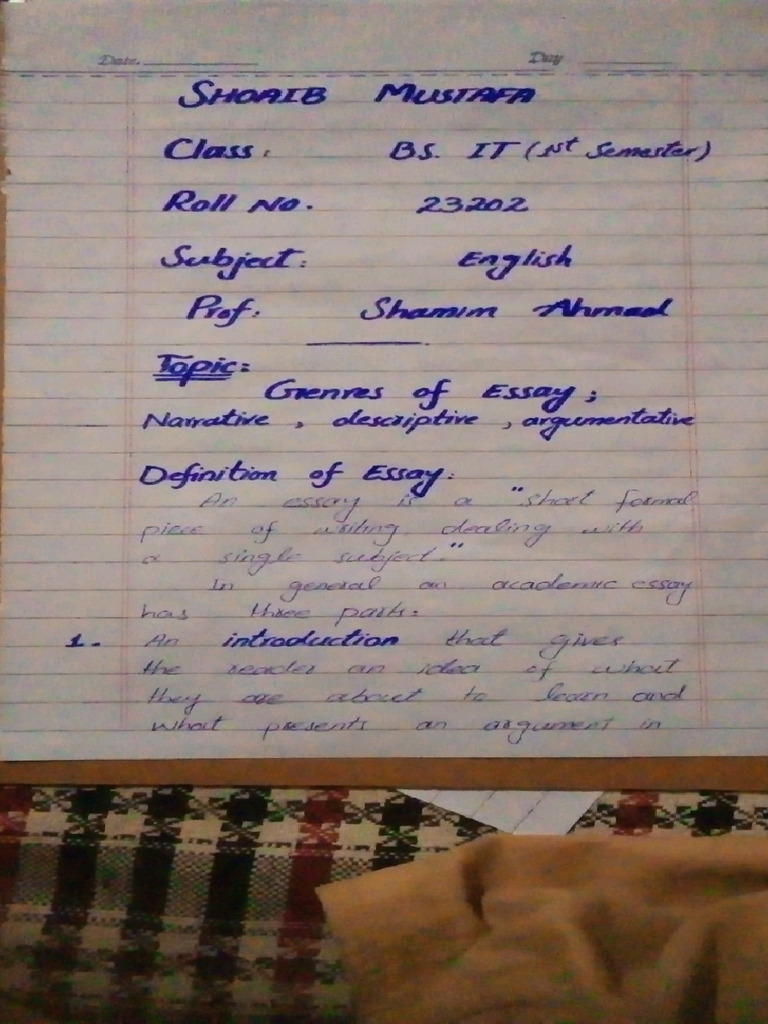 Date. Day
SHOAIB MUSTAFA
Class: BS. IT (1st Semester)
Roll No. 23202
Subject: English
Prof: Shamim Ahmad
Topic:
Genres of Essay;
Narrative, descriptive, argumentative
Definition of Essay:
An essay is a "short formal
piece of writing dealing with
a single subject."
In general an academic essay
has three parts:
1. An introduction that gives
the reader an idea of what
they are about to learn and
what presents an argument in